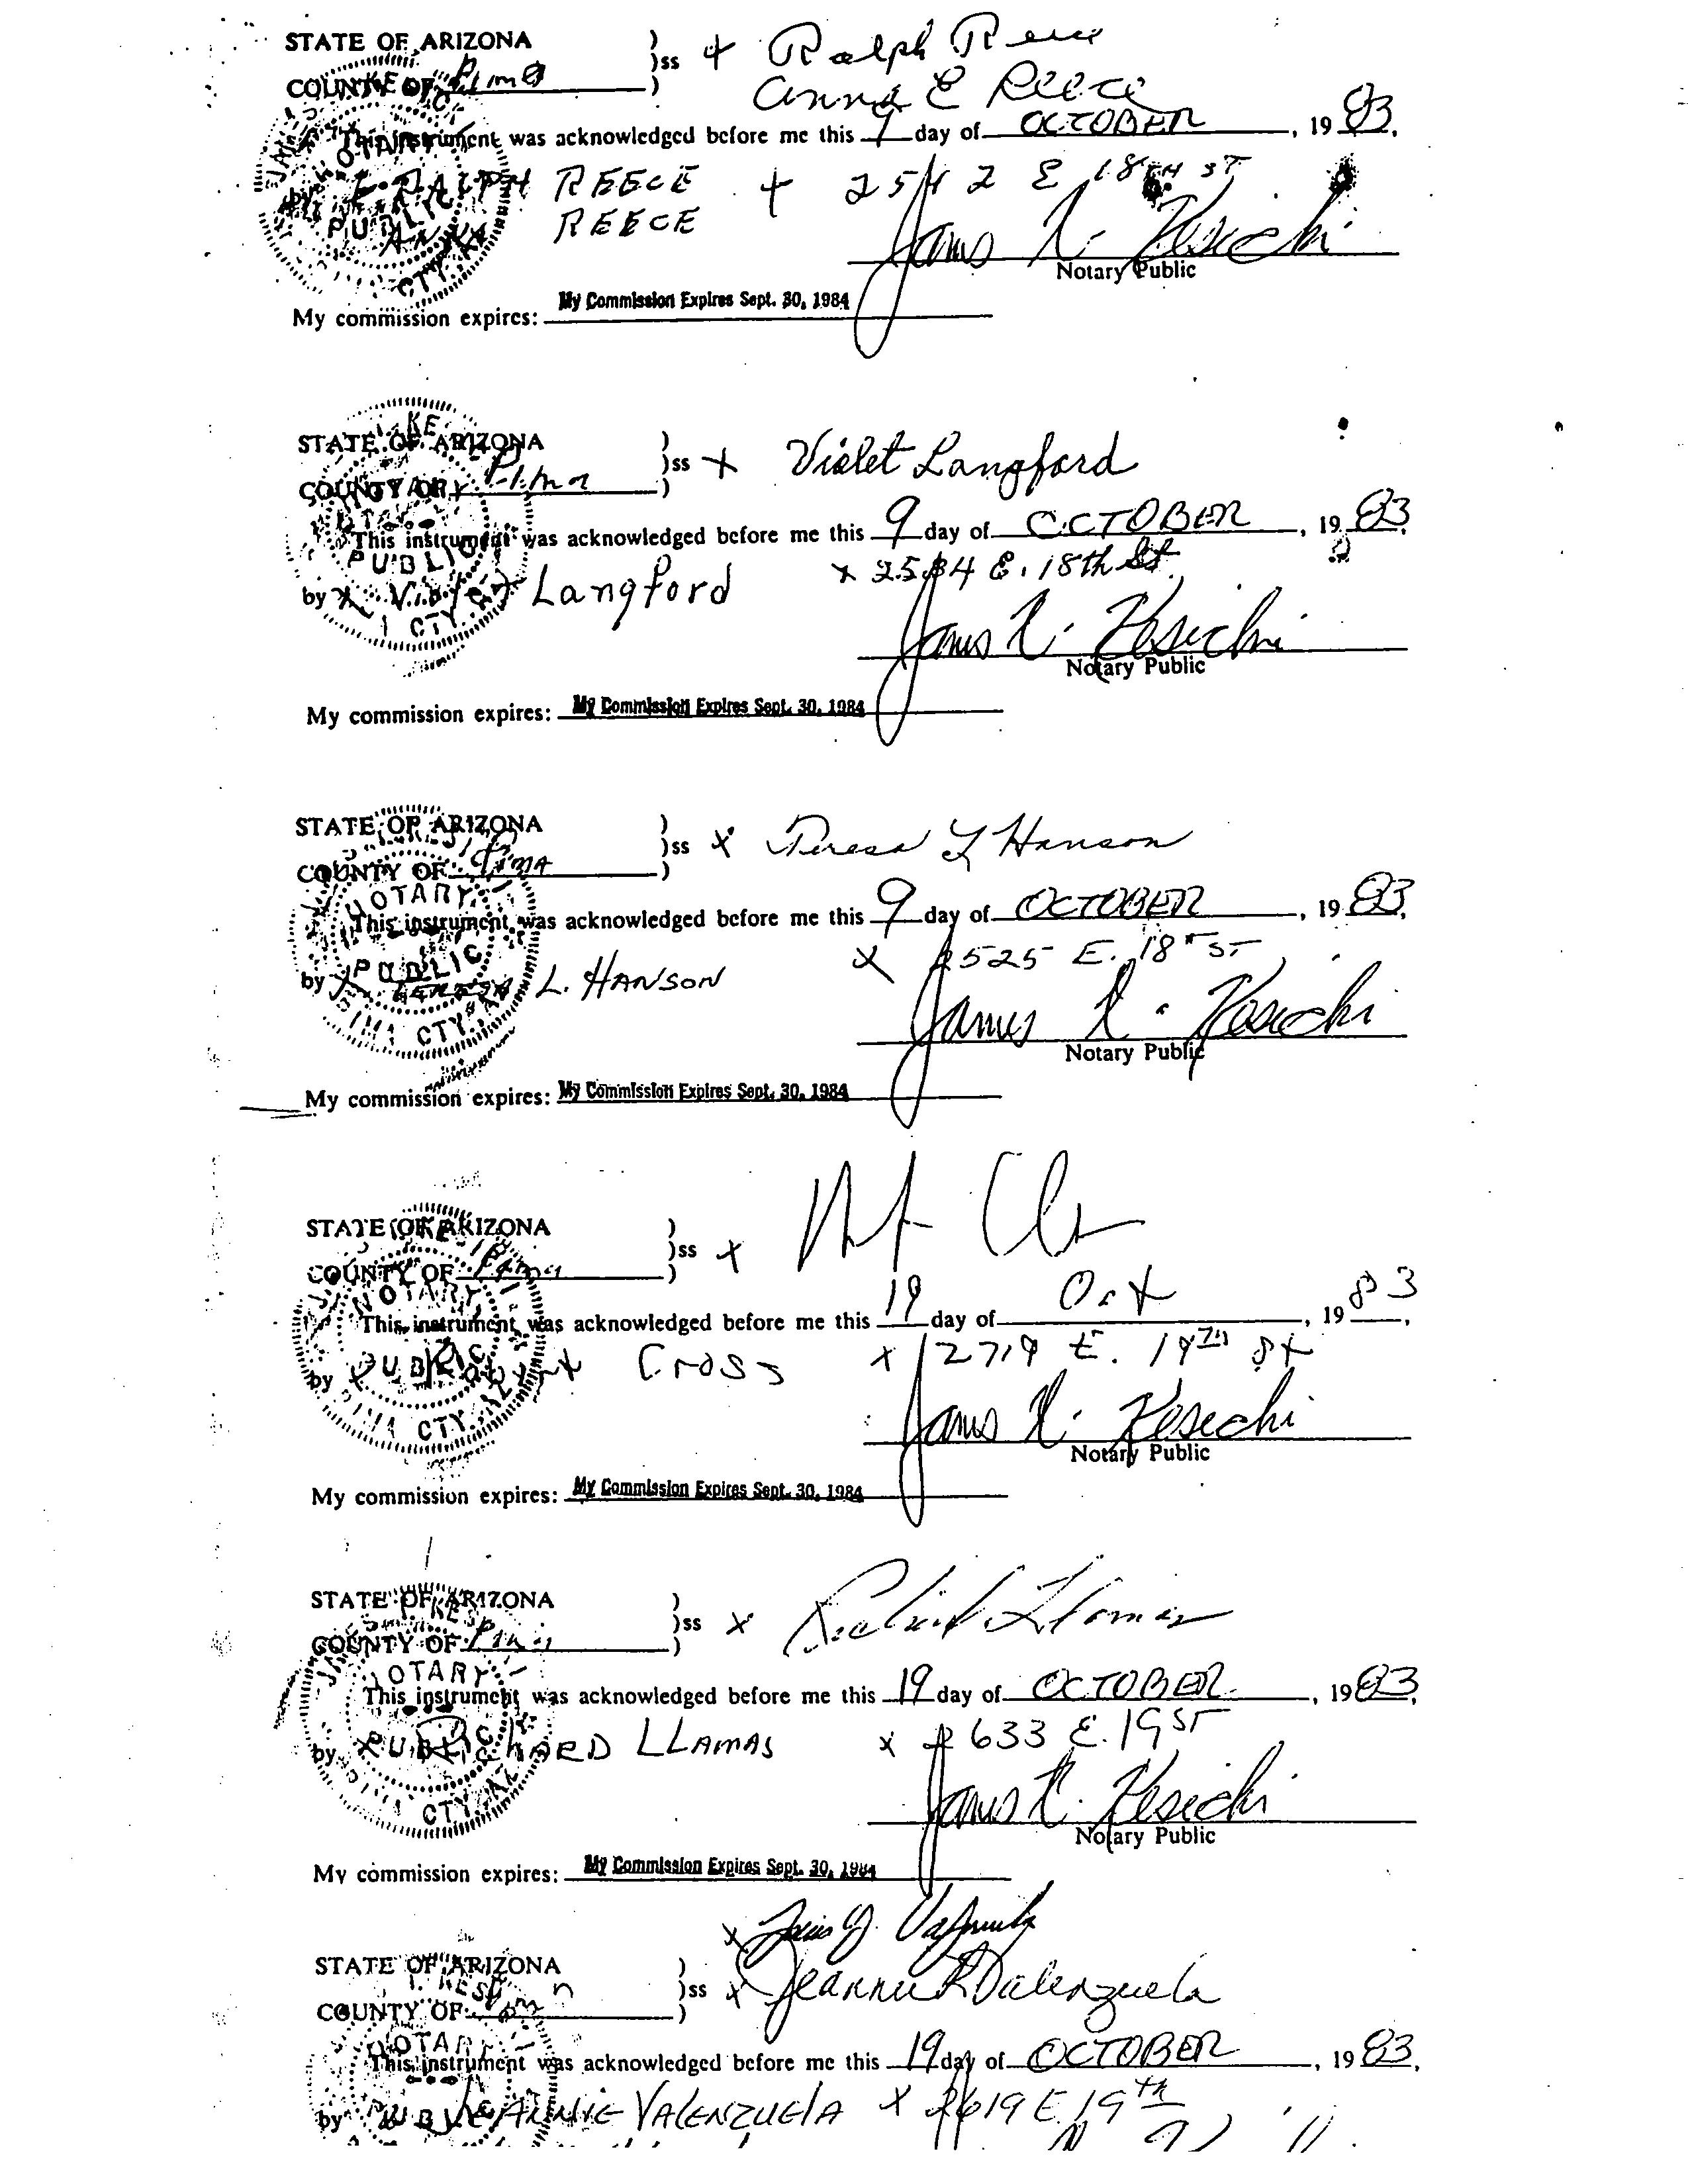 STATE OF ARIZONA )
)ss + Ralph Reece
COUNTY OF Pima )
Anna E Reece
This instrument was acknowledged before me this 9 day of OCTOBER, 1983.
by + RALPH REECE + 2542 E 18TH ST
ANNA REECE
Notary Public
My commission expires: My Commission Expires Sept. 30, 1984
STATE OF ARIZONA )
)ss + Violet Langford
COUNTY OF Pima )
This instrument was acknowledged before me this 9 day of OCTOBER, 1983.
x 2534 E. 18th St.
by x Violet Langford
Notary Public
My commission expires: My Commission Expires Sept. 30, 1984
STATE OF ARIZONA )
)ss x Teresa L Hanson
COUNTY OF Pima )
This instrument was acknowledged before me this 9 day of OCTOBER, 1983.
x 2525 E. 18th ST
by x TERESA L. HANSON
Notary Public
My commission expires: My Commission Expires Sept. 30, 1984
STATE OF ARIZONA )
)ss x
COUNTY OF Pima )
This instrument was acknowledged before me this 19 day of Oct, 1983.
by x Cross x 2719 E. 19TH St
Notary Public
My commission expires: My Commission Expires Sept. 30, 1984
STATE OF ARIZONA )
)ss x Richard Llamas
COUNTY OF Pima )
This instrument was acknowledged before me this 19 day of OCTOBER, 1983.
by x RICHARD LLAMAS x 2633 E. 19 ST
Notary Public
My commission expires: My Commission Expires Sept. 30, 1984
x Valenzuela
STATE OF ARIZONA )
)ss x Jeannie R Valenzuela
COUNTY OF Pima )
This instrument was acknowledged before me this 19 day of OCTOBER, 1983.
by JEANNIE VALENZUELA x 2619 E 19th